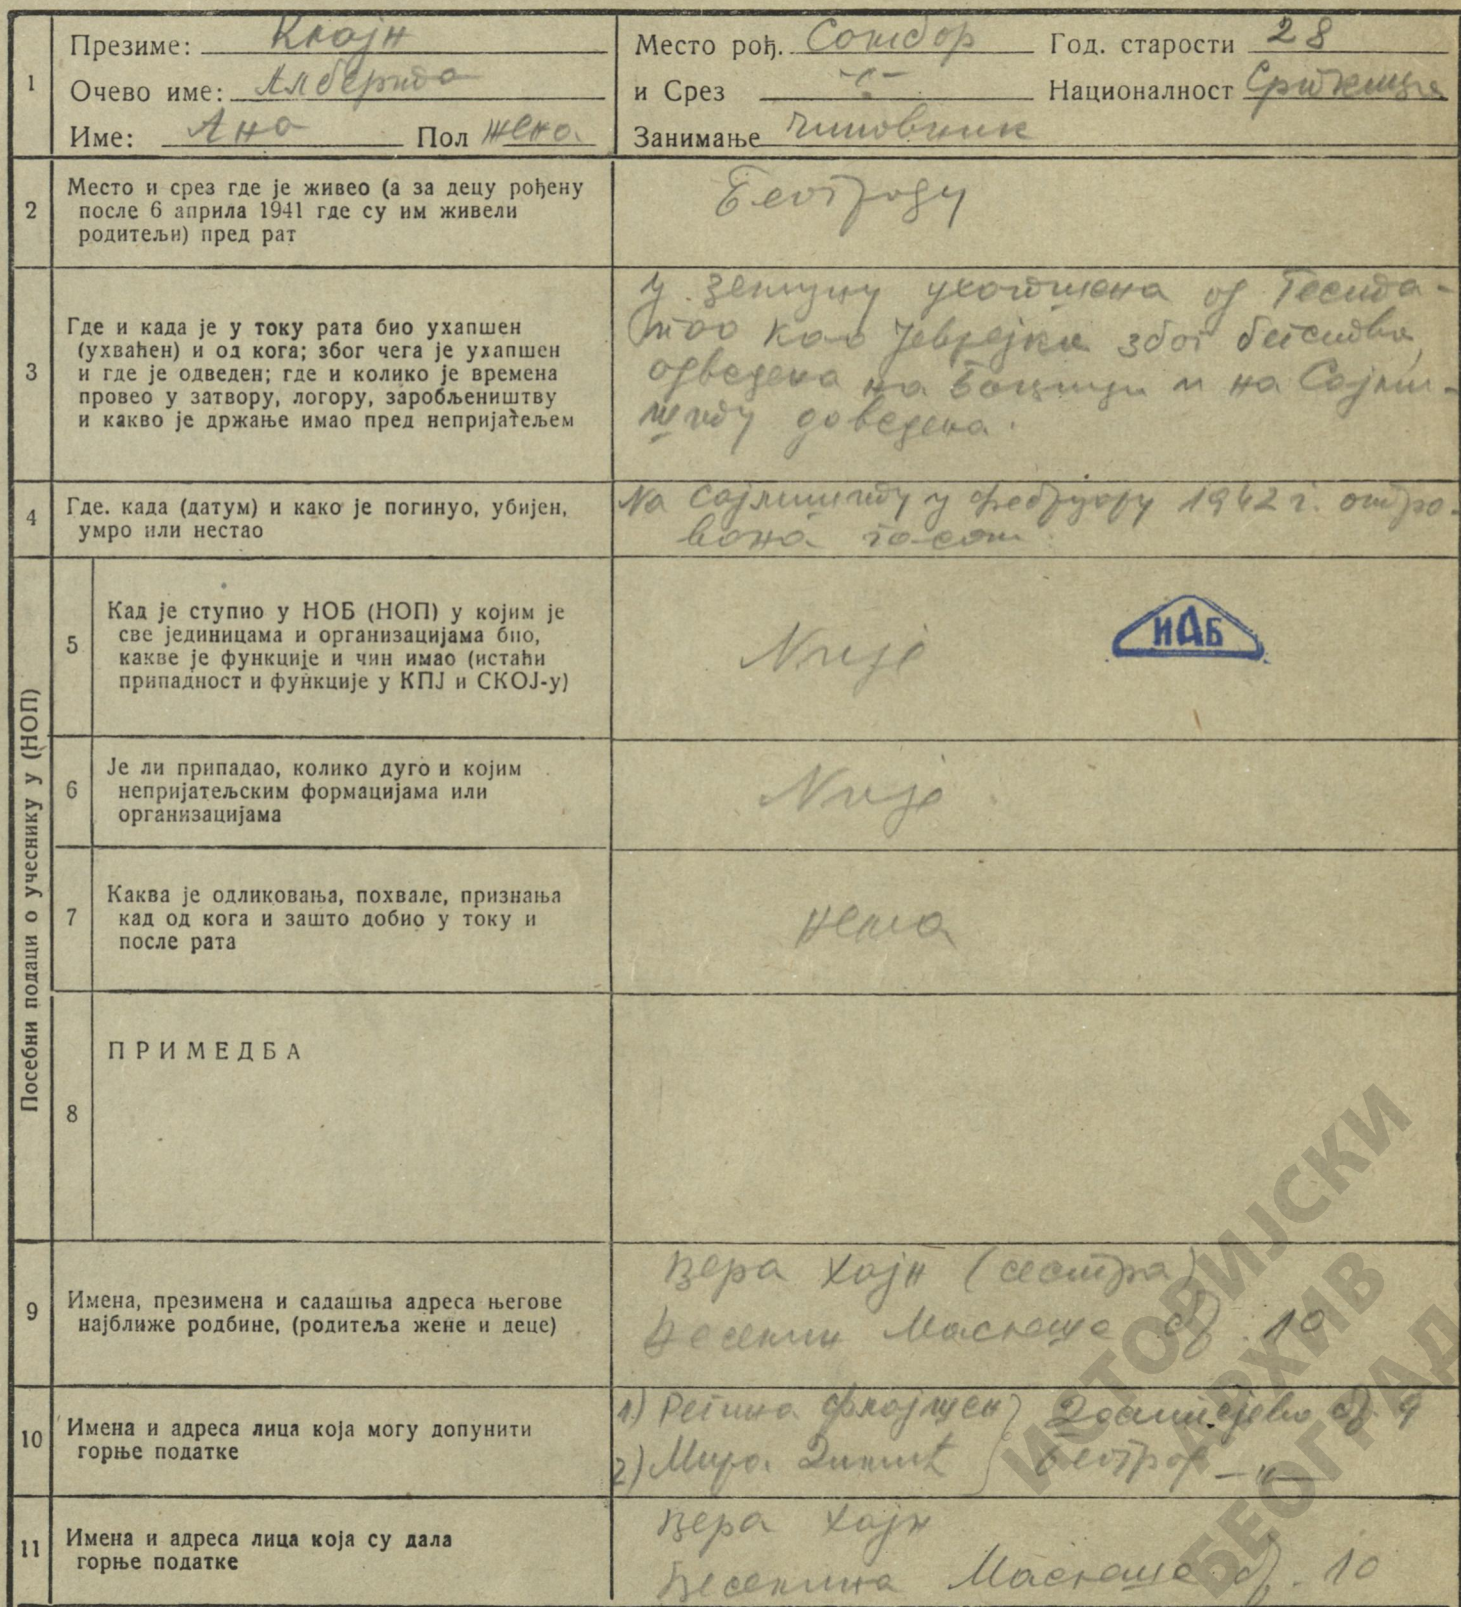 1
Презиме: Клајн
Очево име: Алберта
Име: Ана Пол жена
Место рођ. Сомбор Год. старости 28
и Срез -"- Националност Српкиња
Занимање чиновник
2
Место и срез где је живео (а за децу рођену
после 6 априла 1941 где су им живели
родитељи) пред рат
Београду
3
Где и када је у току рата био ухапшен
(ухваћен) и од кога; због чега је ухапшен
и где је одведен; где и колико је времена
провео у затвору, логору, заробљеништву
и какво је држање имао пред непријатељем
У Земуну ухапшена од Геста-
поа као Јеврејка због бегства,
одведена на Бањицу и на Сајми-
шту доведена.
4
Где. када (датум) и како је погинуо, убијен,
умро или нестао
На Сајмишту у фебруару 1942 г. отро-
вана гасом.
Посебни подаци о учеснику у (НОП)
5
Кад је ступио у НОБ (НОП) у којим је
све јединицама и организацијама био,
какве је функције и чин имао (истаћи
припадност и функције у КПЈ и СКОЈ-у)
Није
ИАБ
6
Је ли припадао, колико дуго и којим
непријатељским формацијама или
организацијама
Није.
7
Каква је одликовања, похвале, признања
кад од кога и зашто добио у току и
после рата
нема
8
ПРИМЕДБА
9
Имена, презимена и садашња адреса његове
најближе родбине, (родитеља жене и деце)
Вера Хајн (сестра)
Маслеше бр. 10
10
Имена и адреса лица која могу допунити
горње податке
1) Регина бр 9
2) Мира Београд -"-
11
Имена и адреса лица која су дала
горње податке
Вера Хајн
Веселина Маслеше бр. 10
ИСТОРИЈСКИ
АРХИВ
БЕОГРАД